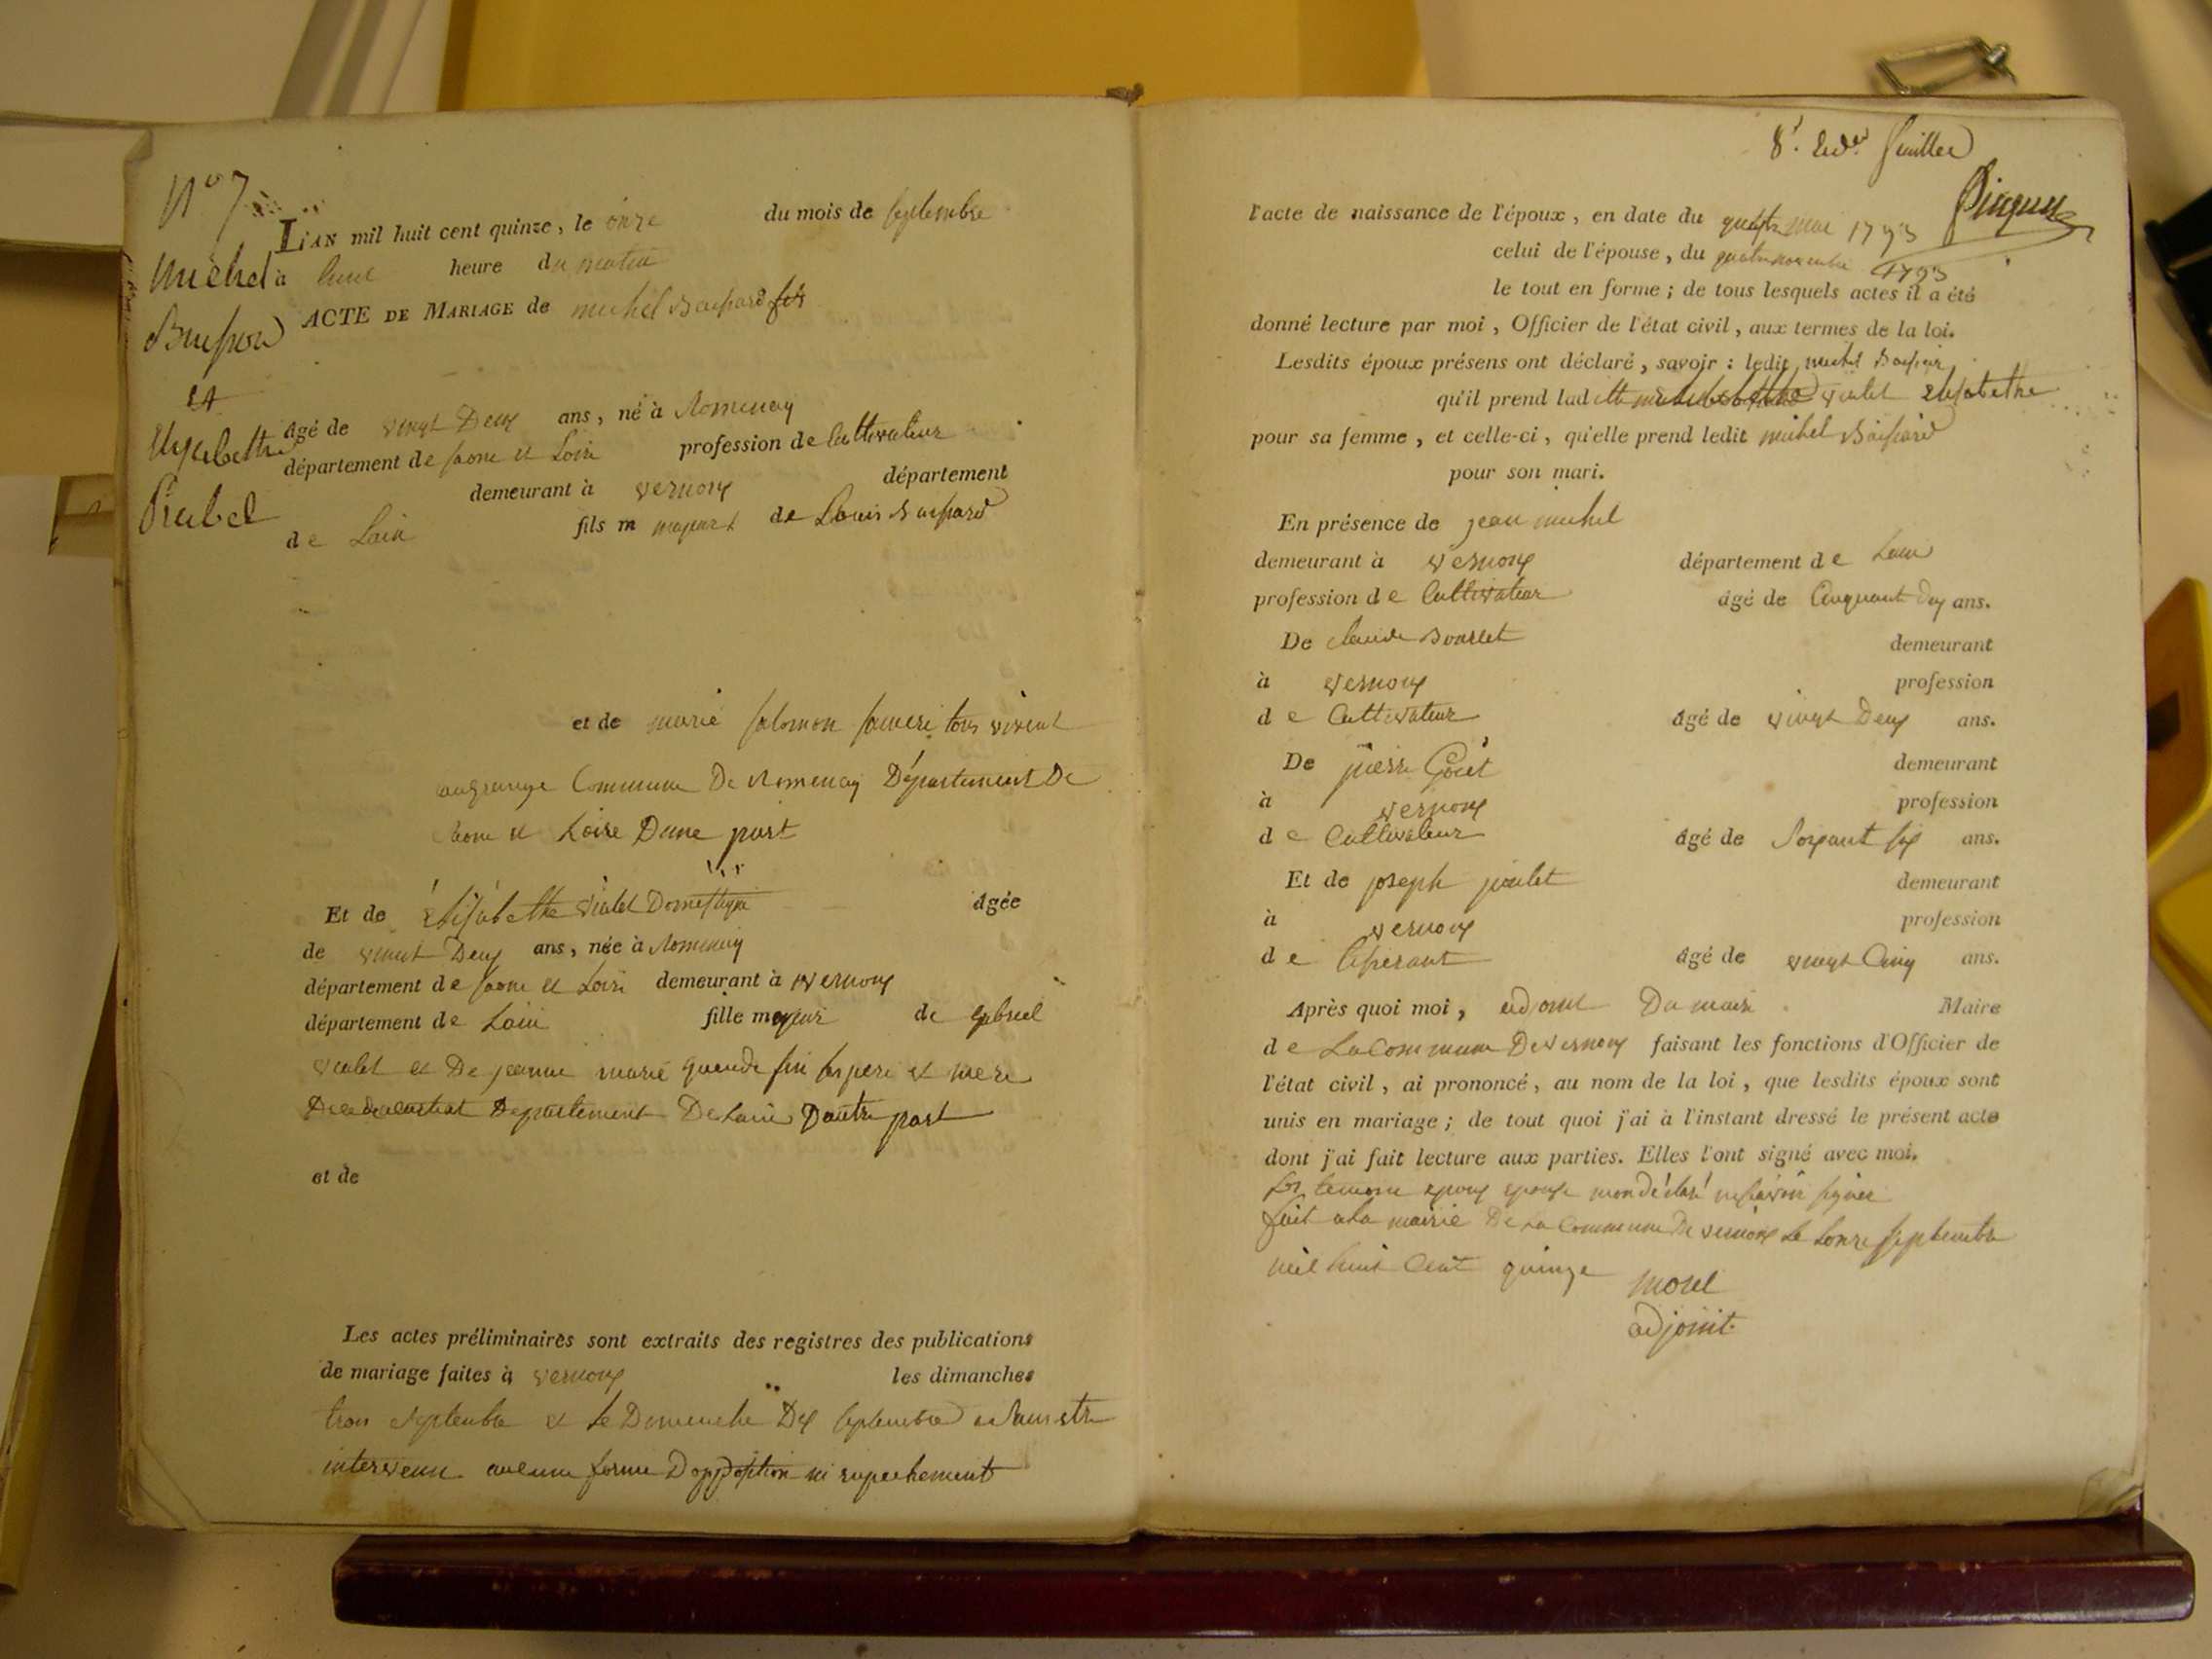 N° 7
L'AN mil huit cent quinze, le onze du mois de septembre
Michel
à heure du matin
ACTE DE MARIAGE de michel
et
agé de vingt Deux ans, né à Romenay
département de saone et Loire profession de Cultivateur
demeurant à vernoux département
de Lain fils m majeur de Louis
et de marie salomon tous vivent
Commune De Romenay Département De
saone et Loire Dune part
Et de Elisabethe violet Domestique agée
de vingt Deux ans, née à Romenay
département de saone et Loire demeurant à vernoux
département de Lain fille majeur de gabriel
violet et De jeanne marie pere et mere
Departement De Lain Dautre part
et de
Les actes préliminaires sont extraits des registres des publications
de mariage faites à vernoux les dimanches
trois septembre et le Dimenche Dix septembre
intervenu aucune forme Dopposition ni enpechement
8e. feuillet
l'acte de naissance de l'époux, en date du mai 1793
celui de l'épouse, du quatre novembre 1793
le tout en forme ; de tous lesquels actes il a été
donné lecture par moi, Officier de l'état civil, aux termes de la loi.
Lesdits époux présens ont déclaré, savoir : ledit michel
qu'il prend laditte violet Elisabethe
pour sa femme, et celle-ci, qu'elle prend ledit michel
pour son mari.
En présence de jean michel
demeurant à vernoux département de Lain
profession de Cultivateur âgé de Cinquant dux ans.
De claude Bourlet demeurant
à vernoux profession
de Cultivateur âgé de vingt Deux ans.
De pierre Goiet demeurant
à vernoux profession
de Cultivateur âgé de Soixant six ans.
Et de joseph demeurant
à vernoux profession
de âgé de vingt Cinq ans.
Après quoi moi, adjoint Du maire Maire
de La Commune De vernoux faisant les fonctions d'Officier de
l'état civil, ai prononcé, au nom de la loi, que lesdits époux sont
unis en mariage ; de tout quoi j'ai à l'instant dressé le présent acte
dont j'ai fait lecture aux parties. Elles l'ont signé avec moi.
temoin epoux epouse déclaré signer
fait a la mairie De La Commune De vernoux Le septembre
mil huit Cent quinze morel
adjoint